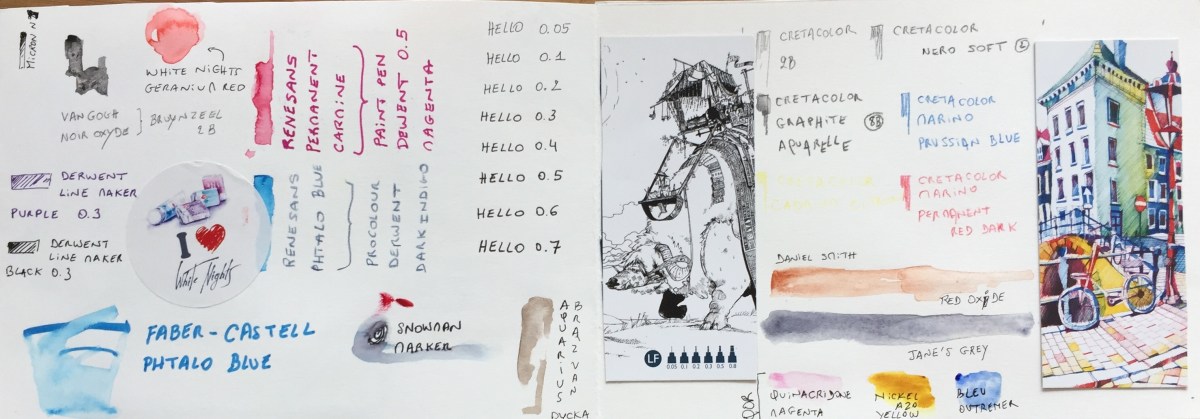 MICRON
WHITE NIGHTS
GERANIUM RED
VAN GOGH
NOIR OXYDE
BRUYNZEEL
2B
DERWENT
LINE MAKER
PURPLE 0.3
DERWENT
LINE MAKER
BLACK 0.3
I
White Nights
RENESANS
PERMANENT
CARMINE
PAINT PEN
DEWENT 0.5
MAGENTA
RENESANS
PHTALO BLUE
PROCOLOUR
DERWENT
DARK INDIGO
HELLO 0.05
HELLO 0.1
HELLO 0.2
HELLO 0.3
HELLO 0.4
HELLO 0.5
HELLO 0.6
HELLO 0.7
FABER-CASTELL
PHTALO BLUE
SNOWMAN
MARKER
AQUARIUS
DUCKA
LF
0.05 0.1 0.2 0.3 0.5 0.8
CRETACOLOR
2B
CRETACOLOR
NERO SOFT
CRETACOLOR
GRAPHITE 8B
AQUARELLE
CRETACOLOR
MARINO
PRUSSIAN BLUE
CRETACOLOR
CRETACOLOR
MARINO
PERMANENT
RED DARK
DANIEL SMITH
RED OXIDE
JANE'S GREY
QUINACRIDONE
MAGENTA
NICKEL
AZO
YELLOW
BLEU
OUTREMER